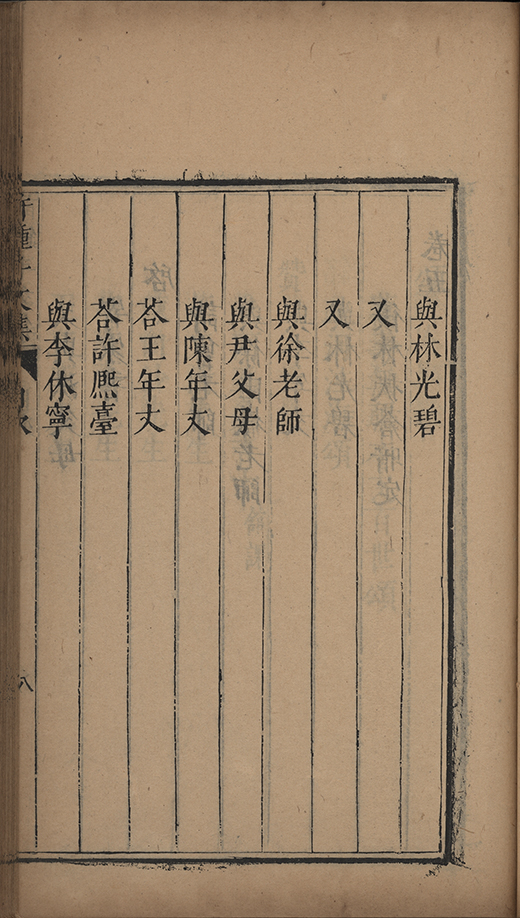 與林光碧
又
又
與徐老師
與尹父母
與陳年丈
荅王年丈
荅許熈臺
與李休寧
八